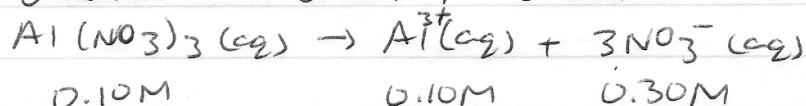 Al(NO3)3 (aq) → Al³⁺(aq) + 3NO3⁻ (aq)
0.10M 0.10M 0.30M